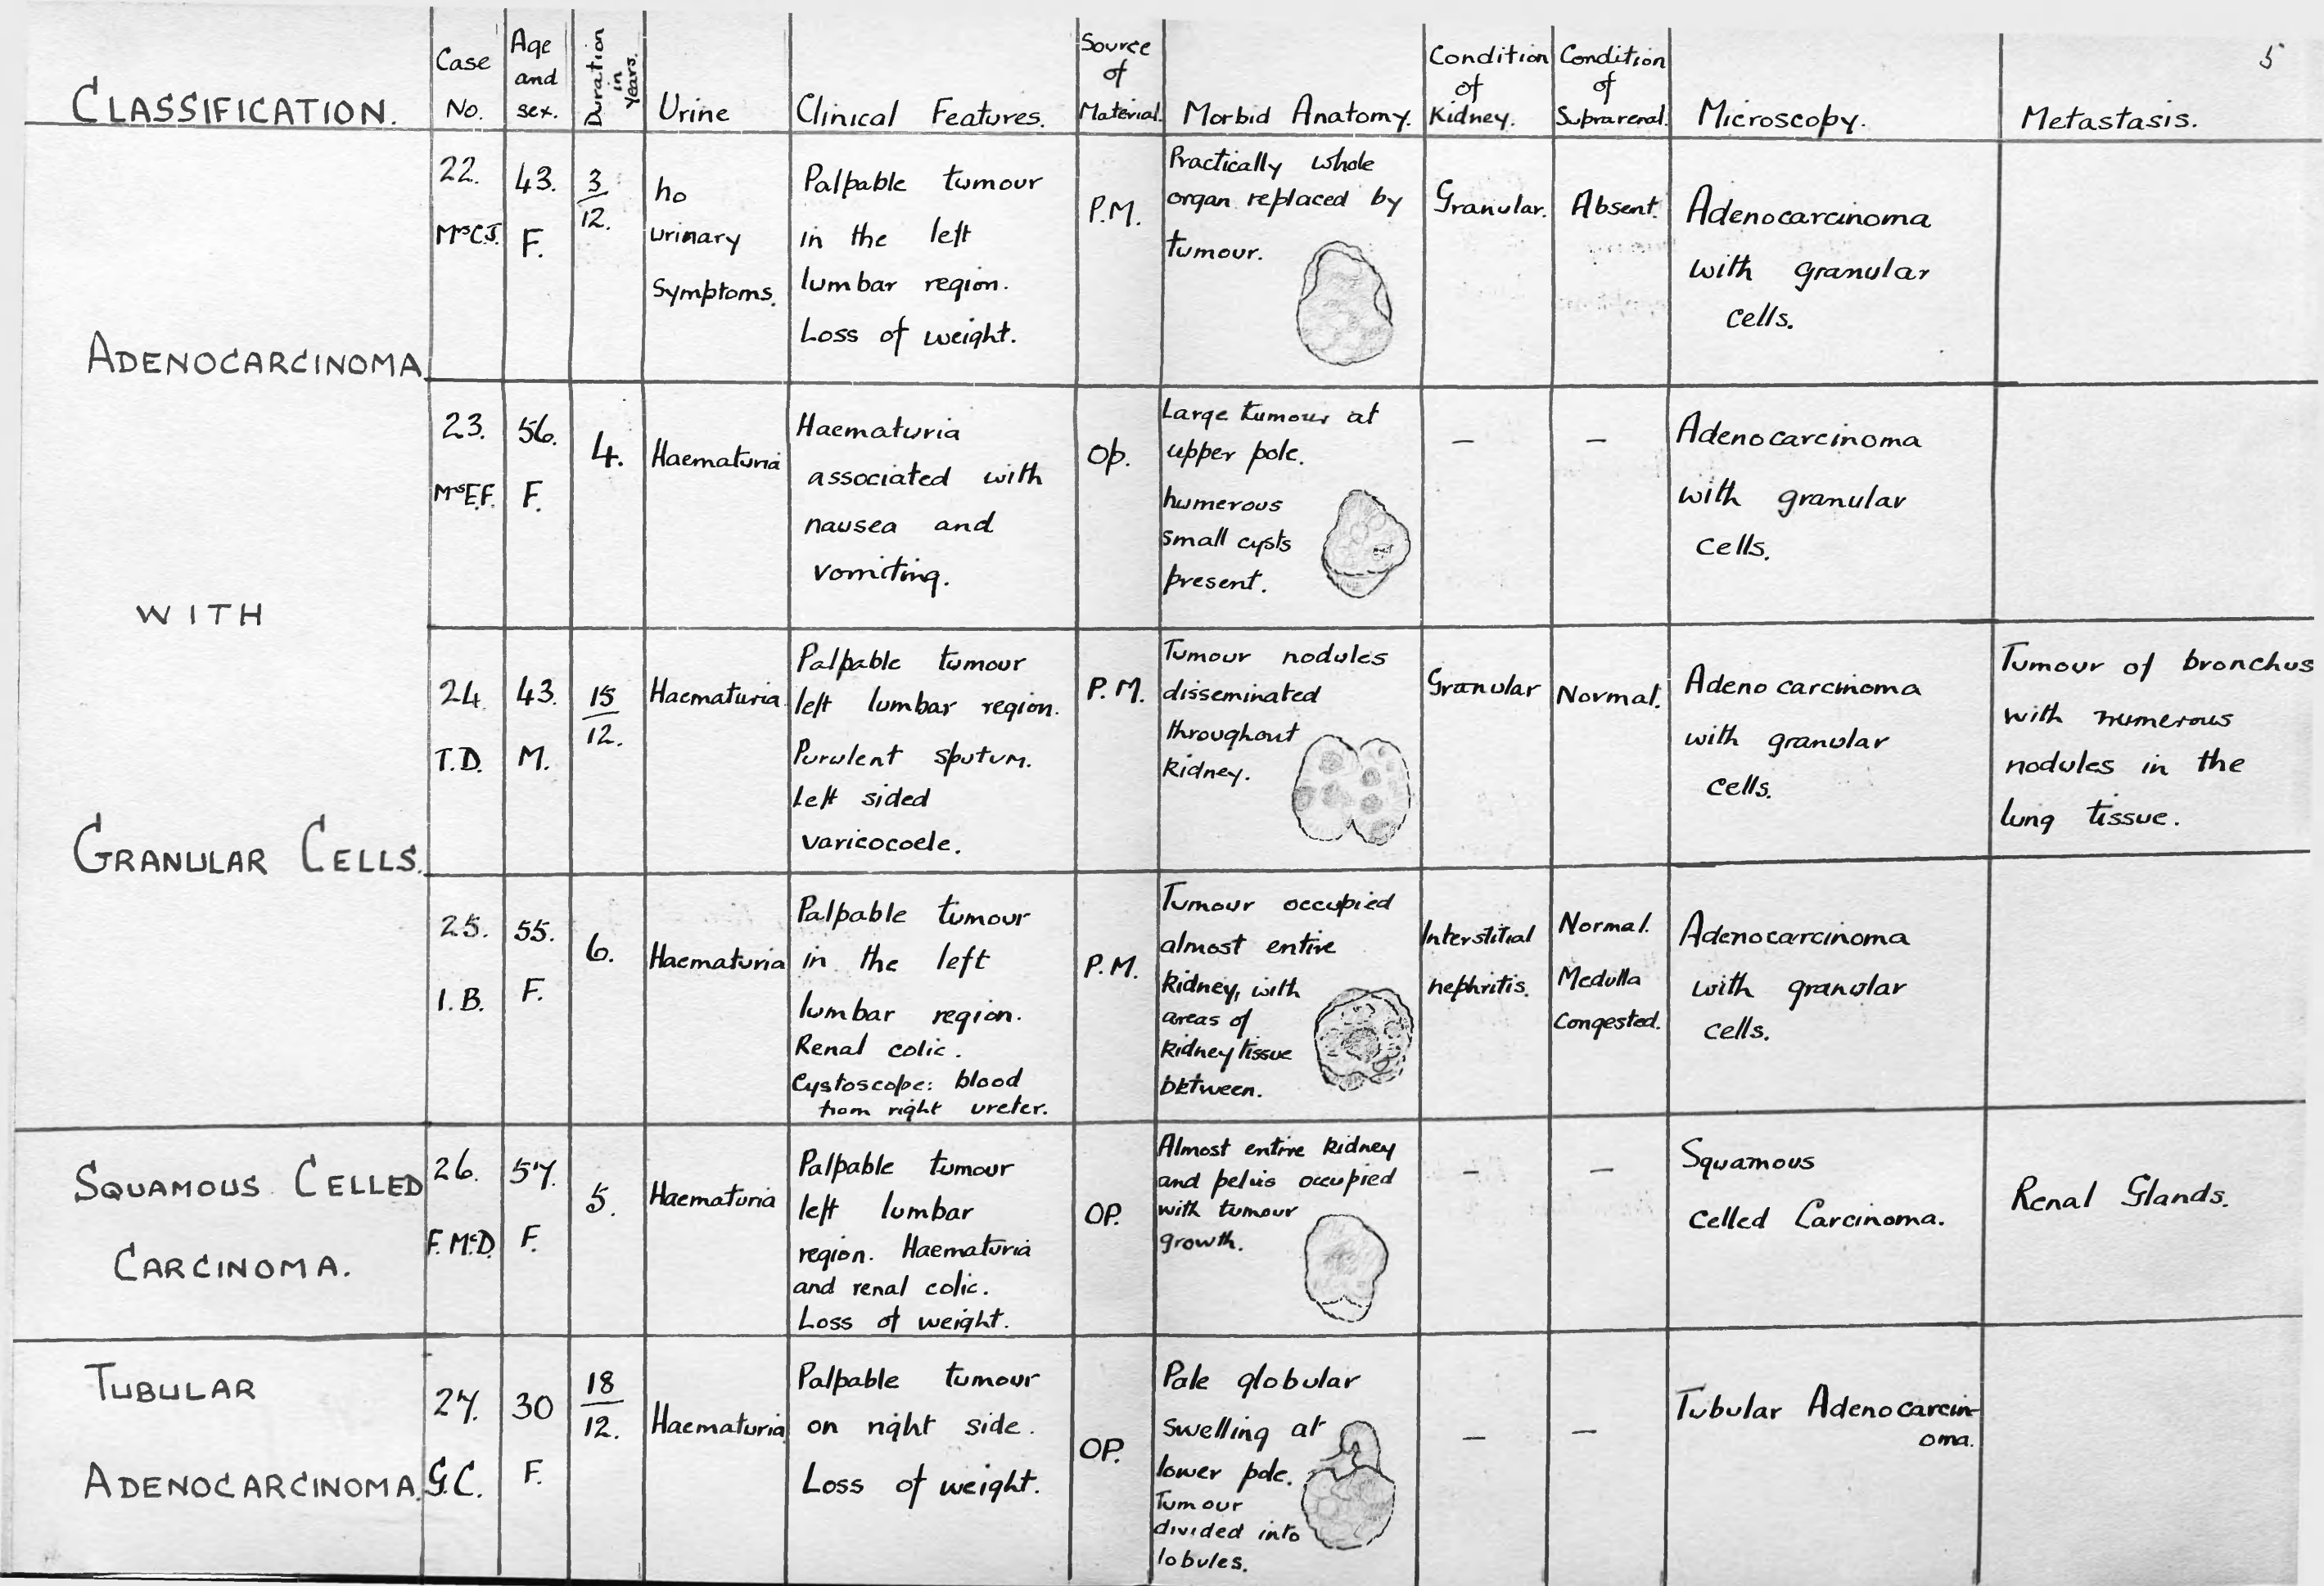 5
CLASSIFICATION.
Case
No.
Age
and
sex.
Duration
in
Years.
Urine
Clinical Features.
Source
of
Material.
Morbid Anatomy.
Condition
of
Kidney.
Condition
of
Suprarenal.
Microscopy.
Metastasis.
ADENOCARCINOMA
WITH
GRANULAR CELLS.
22.
Mrs C.J.
43.
F.
3
12.
no
urinary
Symptoms.
Palpable tumour
in the left
lumbar region.
Loss of weight.
P.M.
Practically whole
organ replaced by
tumour.
Granular.
Absent.
Adenocarcinoma
with granular
cells.
23.
Mrs E.F.
56.
F.
4.
Haematuria
Haematuria
associated with
nausea and
vomiting.
Op.
Large tumour at
upper pole.
numerous
small cysts
present.
–
–
Adenocarcinoma
with granular
cells.
24.
T.D.
43.
M.
15
12.
Haematuria.
Palpable tumour
left lumbar region.
Purulent sputum.
Left sided
varicocoele.
P.M.
Tumour nodules
disseminated
throughout
kidney.
Granular
Normal.
Adenocarcinoma
with granular
cells.
Tumour of bronchus
with numerous
nodules in the
lung tissue.
25.
I.B.
55.
F.
6.
Haematuria
Palpable tumour
in the left
lumbar region.
Renal colic.
Cystoscope: blood
from right ureter.
P.M.
Tumour occupied
almost entire
kidney, with
areas of
kidney tissue
between.
Interstitial
nephritis.
Normal.
Medulla
Congested.
Adenocarcinoma
with granular
cells.
SQUAMOUS CELLED
CARCINOMA.
26.
F. McD.
57.
F.
5.
Haematuria
Palpable tumour
left lumbar
region. Haematuria
and renal colic.
Loss of weight.
OP.
Almost entire kidney
and pelvis occupied
with tumour
growth.
–
–
Squamous
celled Carcinoma.
Renal Glands.
TUBULAR
ADENOCARCINOMA.
27.
G.C.
30
F.
18
12.
Haematuria.
Palpable tumour
on right side.
Loss of weight.
OP.
Pale globular
swelling at
lower pole.
Tumour
divided into
lobules.
–
–
Tubular Adenocarcin-
oma.